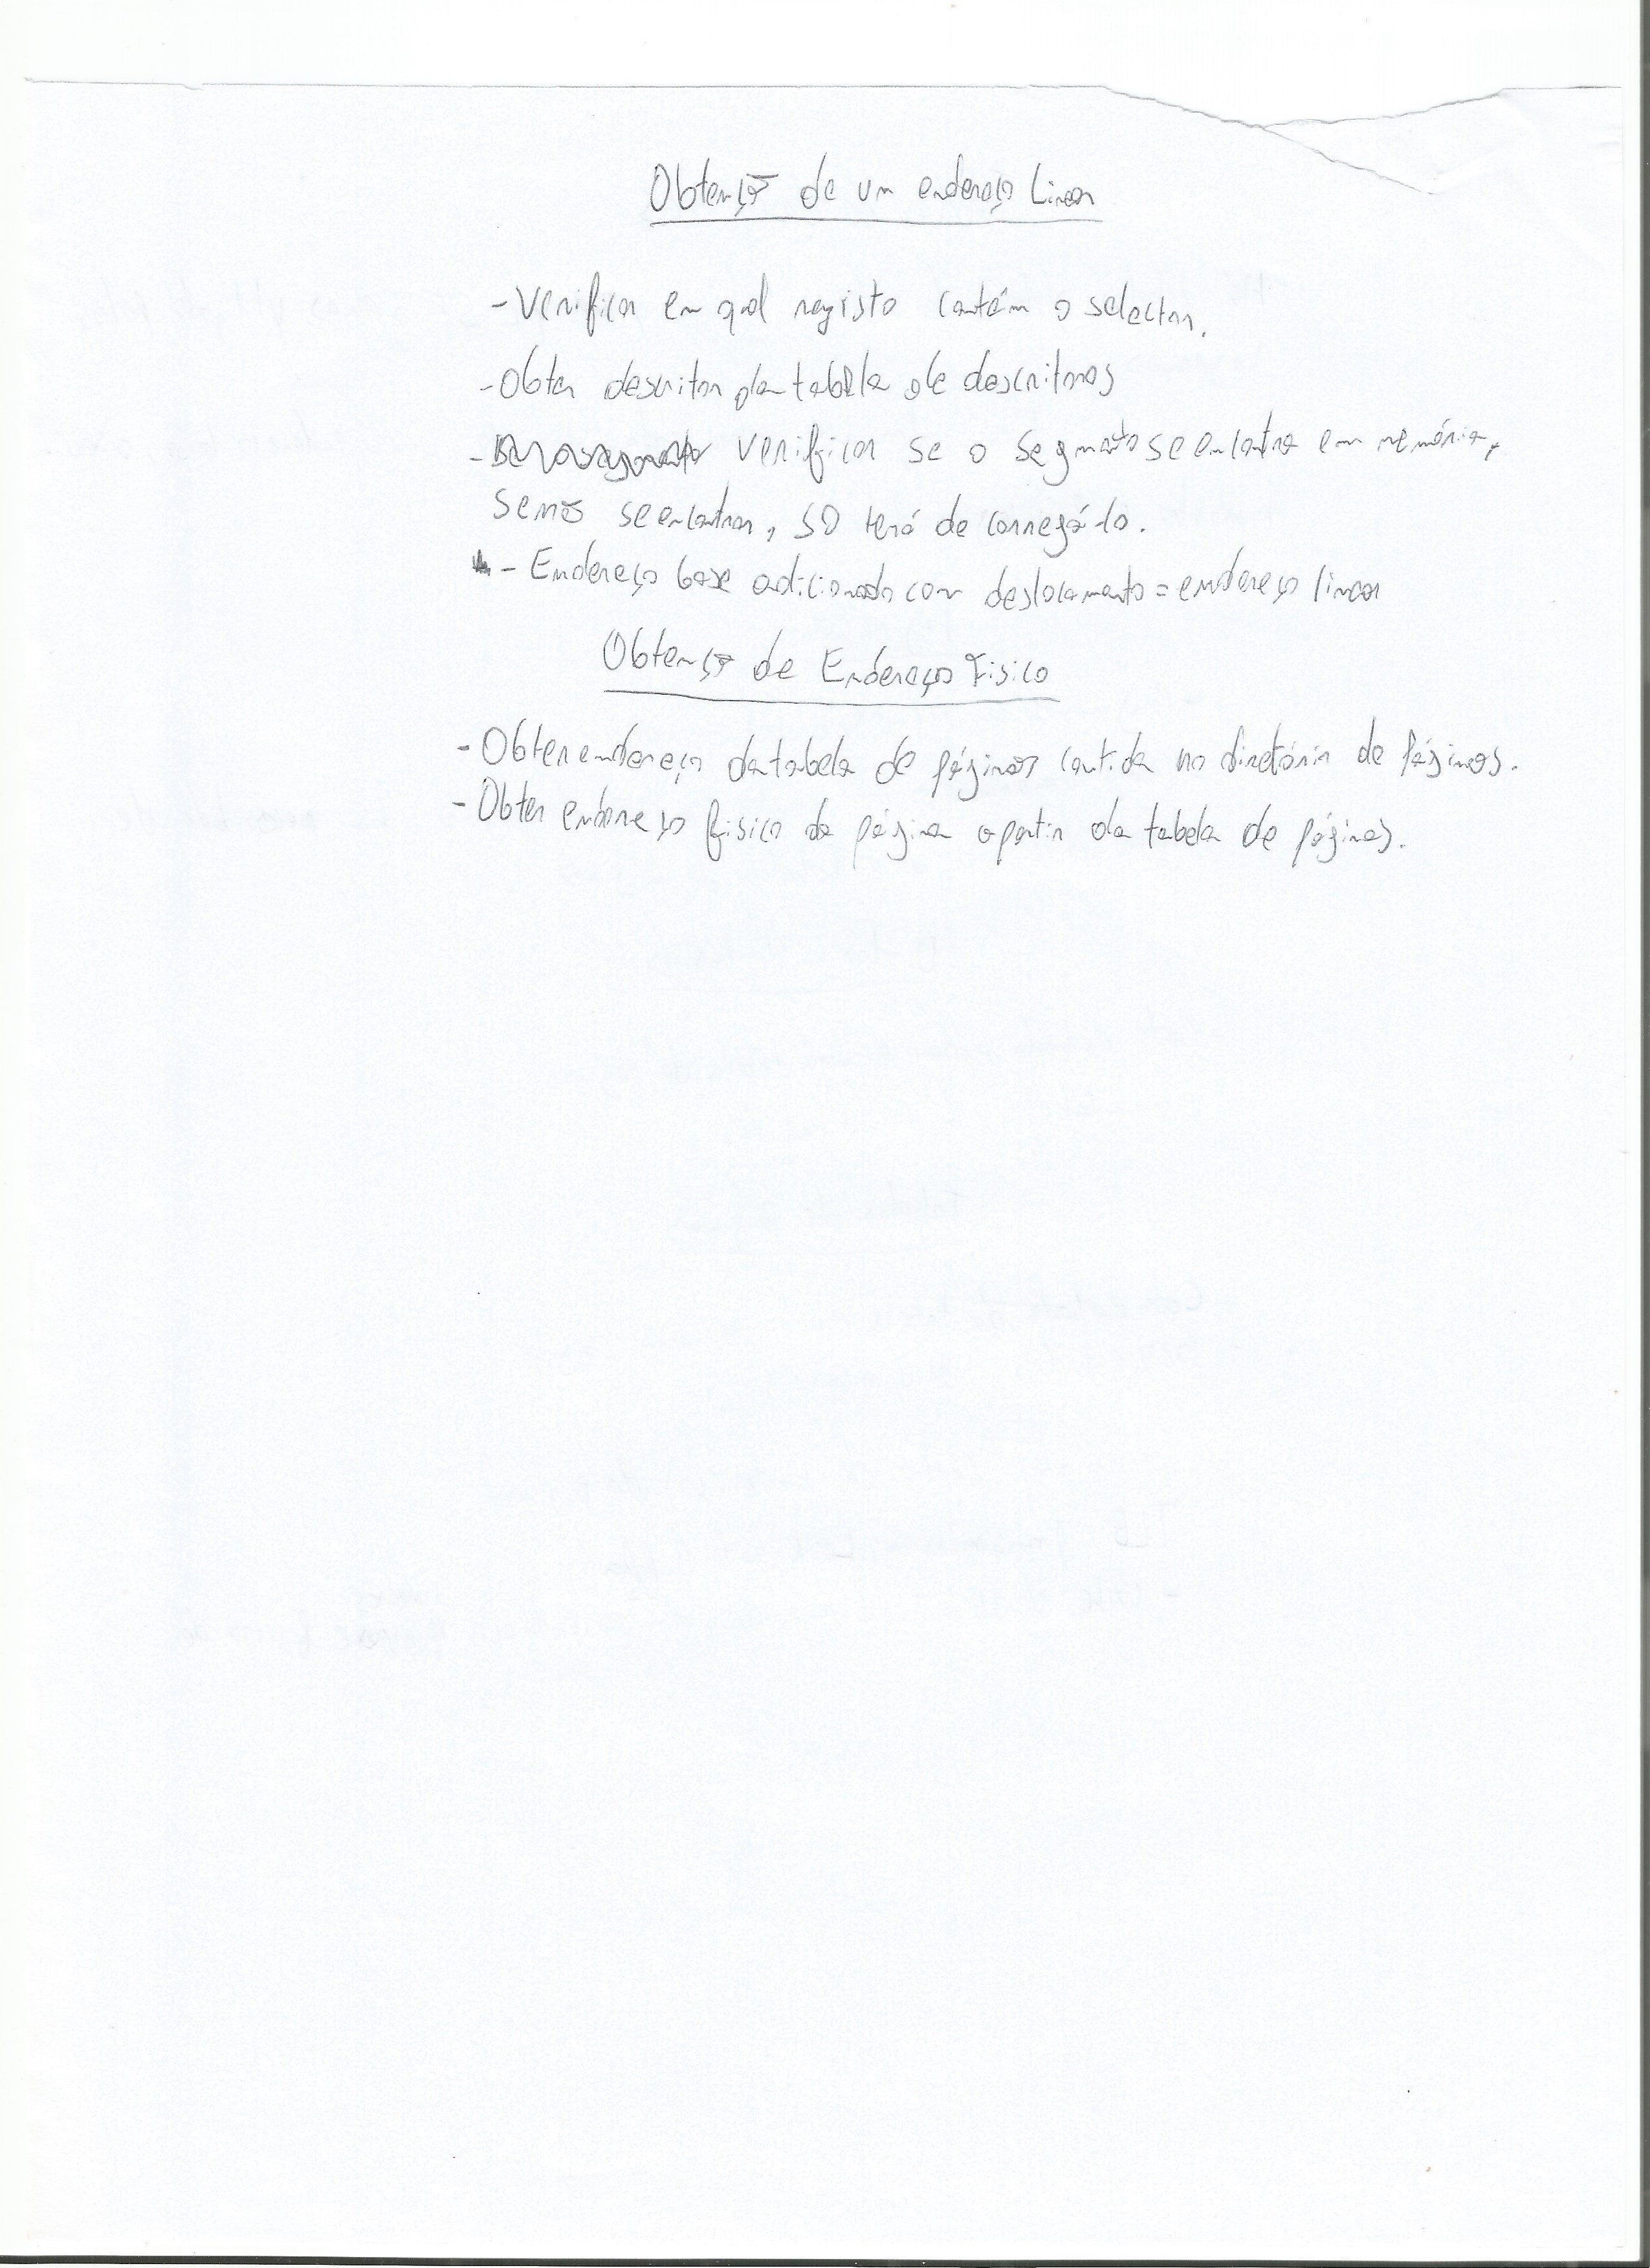 Obtenção de um endereço Linear
- Verificar em qual registo contém o selector.
- Obter descritor da tabela de descritores
- verificar se o segmento se encontra em memória,
se não se encontrar, SO terá de carregá-lo.
- Endereço base adicionado com deslocamento = endereço linear
Obtenção de Endereço Fisico
- Obter endereço da tabela de páginas contida no diretório de páginas.
- Obter endereço fisico da página a partir da tabela de páginas.